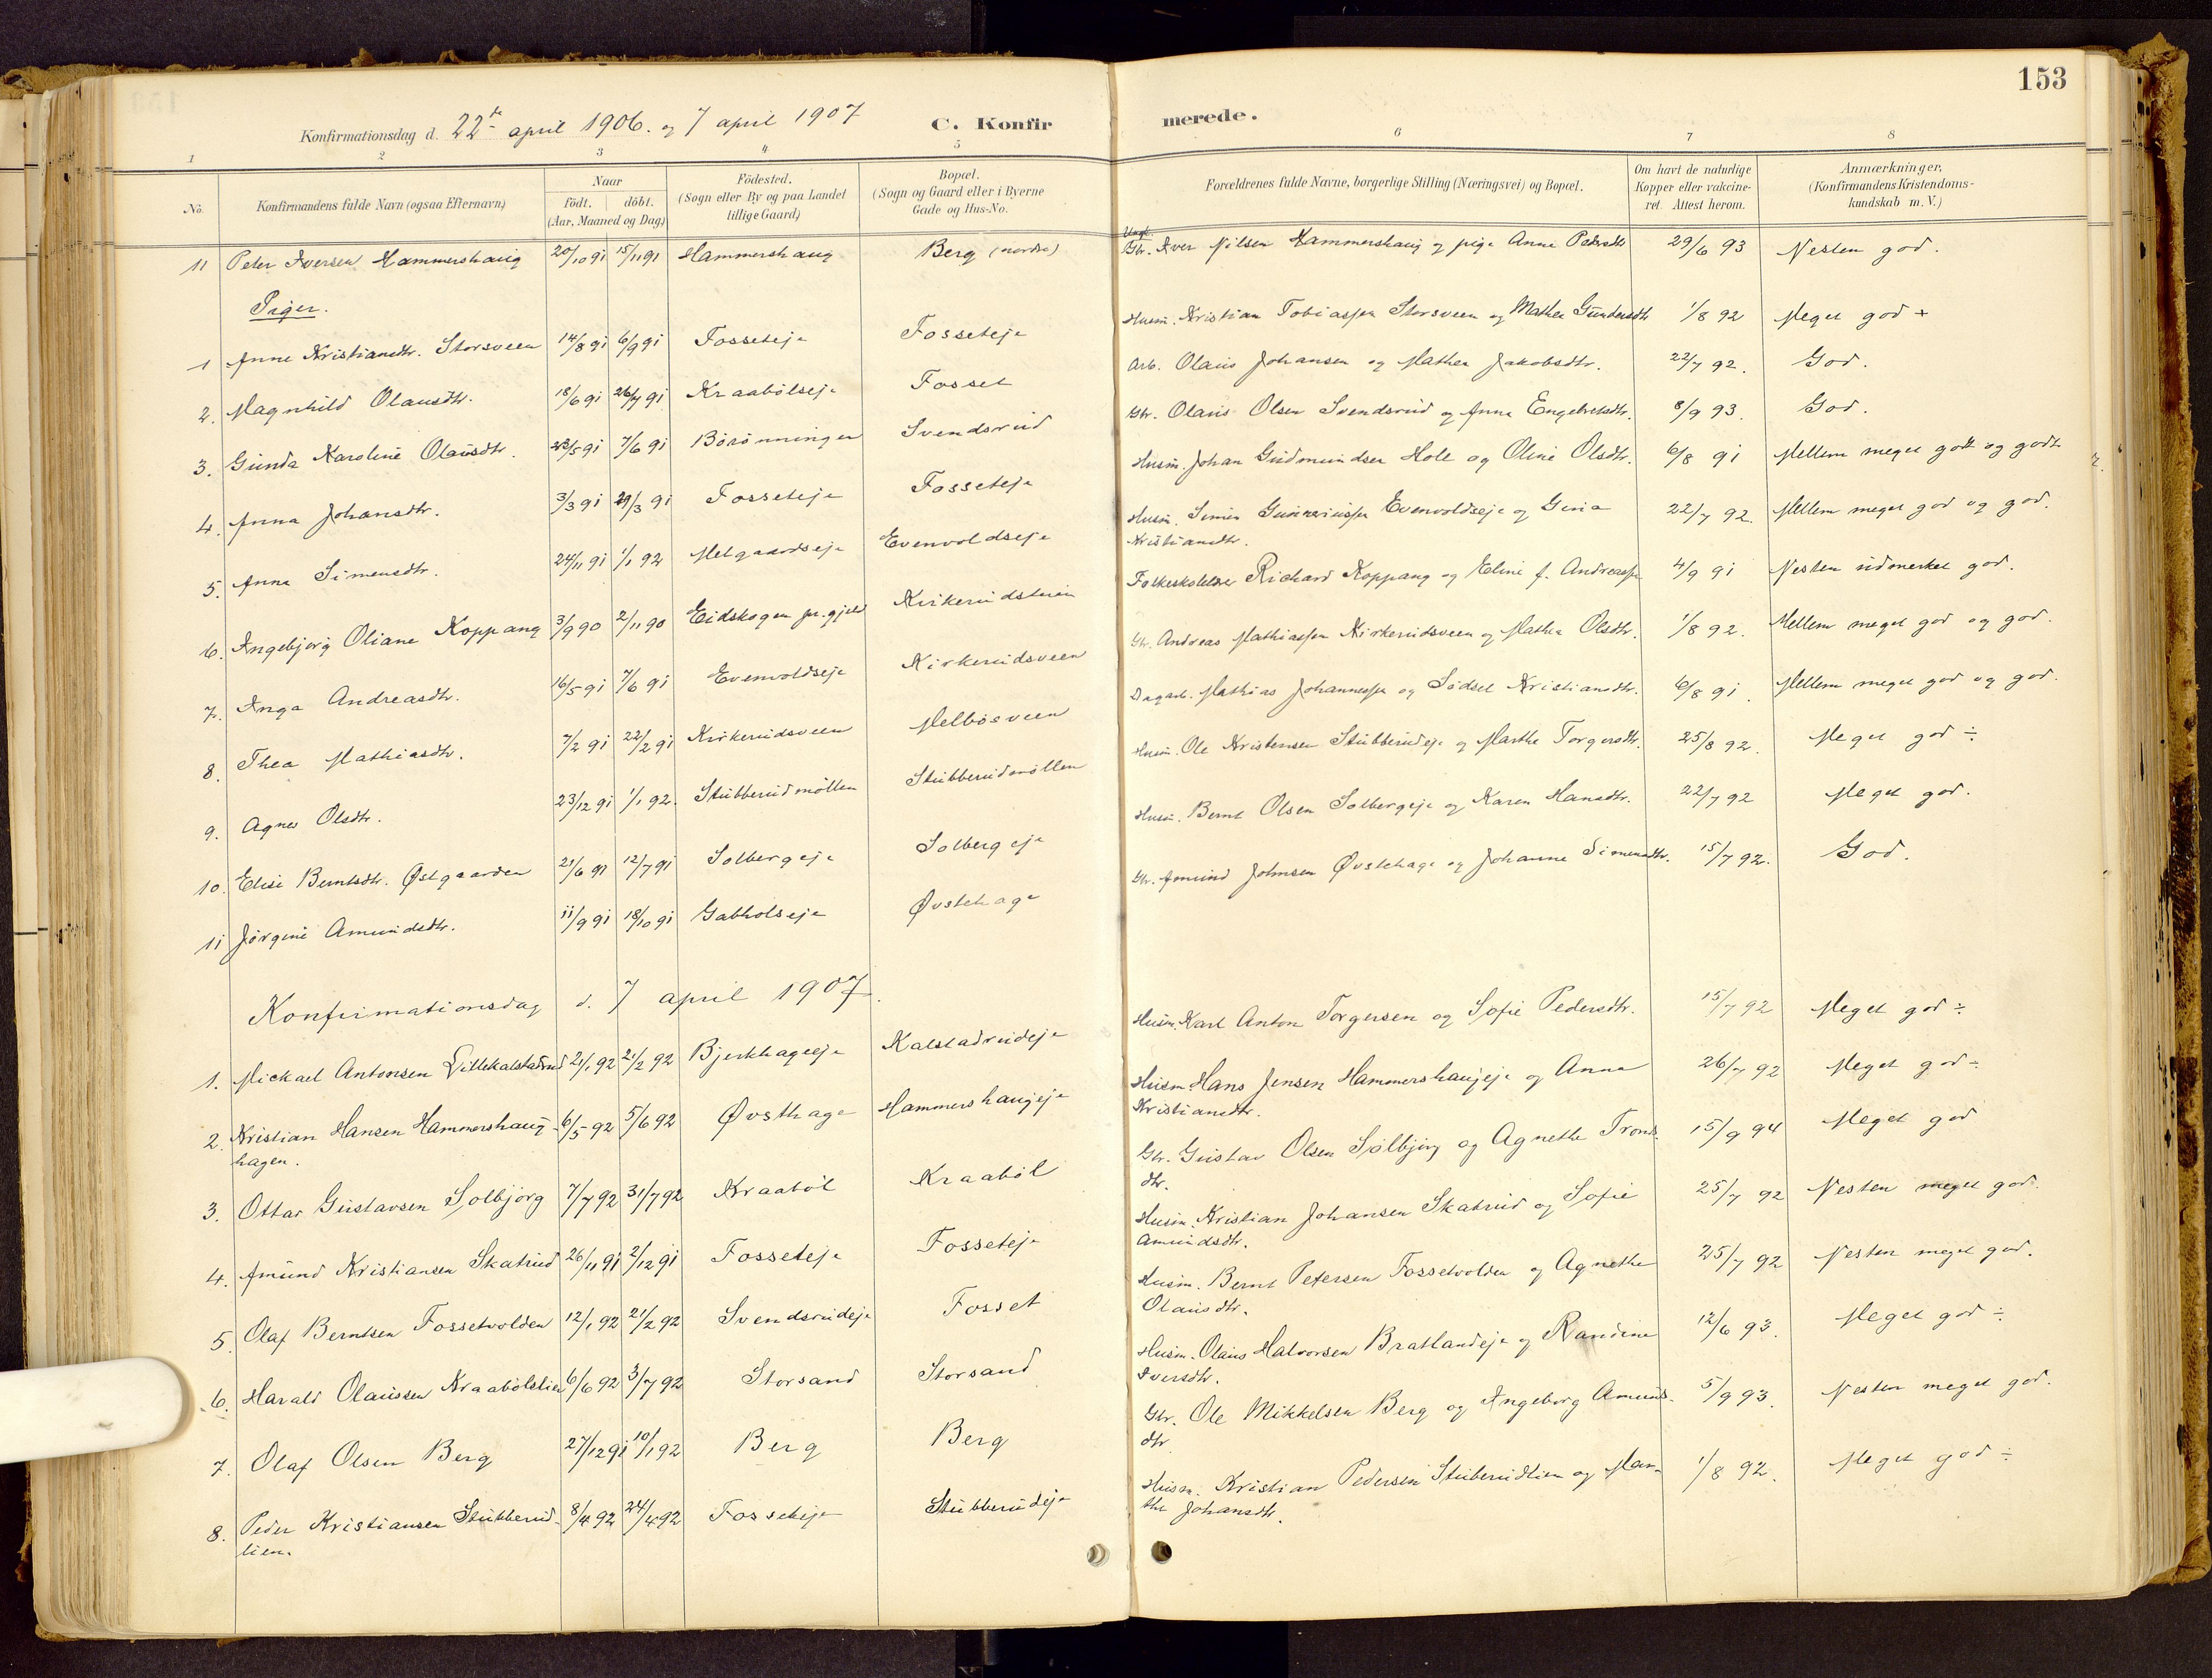 153
Konfirmationsdag d. 22de april 1906. og 7 april 1907 C. Konfirmerede.
1 2 3 4 5 6 7 8
No. Konfirmandens fulde Navn (ogsaa Efternavn) Naar Födt. döbt. (Aar, Maaned og Dag) Födested. (Sogn eller By og paa Landet tillige Gaard) Bopæl. (Sogn og Gaard eller i Byerne Gade og Hus-No. Forældrenes fulde Navne, borgerlige Stilling (Næringsvei) og Bopæl. Om havt de naturlige Kopper eller vaccineret. Attest herom. Anmærkninger, (Konfirmandens Kristendomskundskab m. V.)
11 Peter Iversen Hammershaug 20/10 91 15/11 91 Hammershaug Berg (nordre) Ungk. Gbr. Iver Nilsen Hammershaug og pige Anne Pedersdtr 29/6 93 Nesten god.
Piger.
1 Anne Kristiansdtr. Storsveen 14/8 91 6/9 91 Fosseteje Fosseteje Husm. Kristian Tobiassen Storsveen og Mathea Gundersdtr 1/8 92 Meget god +
2. Magnhild Olausdtr. 18/6 91 26/7 91 Kraabölseje Fosset Arb. Olaus Johansen og Mathea Jakobsdtr. 22/7 92. God.
3. Gunda Karoline Olausdtr. 23/5 91 7/6 91 Börönningen Svendsrud Gbr. Olaus Olsen Svendsrud og Anne Engebretsdtr. 8/9 93. God.
4. Anna Johansdtr. 3/3 91 29/3 91 Fosseteje Fosseteje Husm. Johan Gudmundsen Hole og Oline Olsdtr. 6/8 91 Mellem meget godt og godt
5. Anna Simensdtr. 24/11 91 1/1 92 Melgaardseje Evenvoldseje Husm. Simen Gunneriussen Evenvoldseje og Gina Kristiansdtr. 22/7 92. Mellem meget god og god.
6. Ingebjørg Oliane Koppang 3/9 90 2/11 90 Eidskogen pr.gjeld Kirkerudsteien Folkeskolelærer Richard Koppang og Eline f. Andreassen 4/9 91 Nesten udmerket god.
7. Inga Andreasdtr. 16/5 91 7/6 91 Evenvoldseje Kirkerudsveen Gbr. Andreas Mathiassen Kirkerudsveen og Mathea Olsdtr. 1/8 92. Mellem meget god og god.
8. Thea Mathiasdtr. 7/2 91 22/2 91 Kirkerudsveen Melbösveen Dagarb. Mathias Johannessen og Sidsel Kristiansdtr. 6/8 91. Mellem meget god og god.
9. Agnes Olsdtr. 23/12 91 1/1 92. Stubberudmöllen Stubberudmöllen Husm. Ole Kristensen Stubberudeje og Marthe Torgersdtr. 25/8 92. Meget god ÷
10. Elise Berntsdtr. Østgaarden 21/6 91 12/7 91 Solbergeje Solbergeje Husm. Bernt Olsen Solbergeje og Karen Hansdtr. 22/7 92 Meget god.
11 Jörgine Amundsdtr. 11/9 91 18/10 91 Gabholseje Øvstehage Gbr. Amund Johnsen Øvstehage og Johanne Simensdtr. 15/7 92. God.
Konfirmationsdag d. 7 april 1907.
1. Mickael Antonsen Lillekalstadrud 21/1 92 21/2 92 Bjerkhageeje Kalstadrudeje Husm. Karl Anton Torgersen og Sofie Pedersdtr. 15/7 92 Meget god ÷
2. Kristian Hansen Hammershaughagen. 6/5 92 5/6 92 Øvsthage Hammershaugeje Husm. Hans Jensen Hammershaugeje og Anna Kristiansdtr. 26/7 92 Meget god ÷
3. Ottar Gustavsen Solbjörg 7/7 92 31/7 92 Kraaböl Kraaböl Gbr. Gustav Olsen Solbjörg og Agnethe Tronds dtr. 15/9 94 Meget god
4. Amund Kristiansen Skatrud 26/11 91 2/12 91 Fosseteje Fosseteje Husm. Kristian Johansen Skatrud og Sofie Amundsdtr. 25/7 92 Nesten meget god.
5. Olaf Berntsen Fossetvolden 12/1 92 21/2 92 Svendsrudeje Fosset Husm. Bernt Petersen Fossetvolden og Agnethe Olausdtr. 25/7 92 Nesten meget god.
6. Harald Olaussen Kraabölslien 6/6 92 3/7 92 Storsand Storsand Husm. Olaus Halvorsen Bratlandeje og Randine Iversdtr. 12/6 93. Meget god ÷
7. Olaf Olsen Berg 27/12 91 10/1 92 Berg Berg Gbr. Ole Mikkelsen Berg og Ingeborg Amunds dtr 5/9 93. Nesten meget god.
8. Peder Kristiansen Stubberudlien. 8/4 92 24/4 92 Fosseteje Stubberudeje Husm. Kristian Pedersen Stuberudlien og Marthe Johansdtr. 1/8 92. Meget god ÷